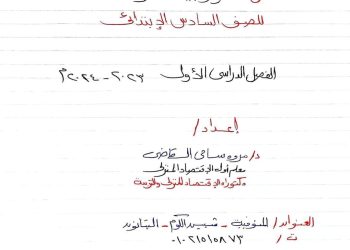 للصف السادس الإبتدائى
الفصل الدراسى الأول ٢٠٢٣ - ٢٠٢٤م
إعداد /
د/ مروه سامى القاضى
معلم أول الإقتصاد المنزلى
دكتوراه الإقتصاد المنزلى والتربية
العنوان / المنوفية - شبين الكوم - الثانوية
ت / ٠١٠٢١٥١٥٨٧٣